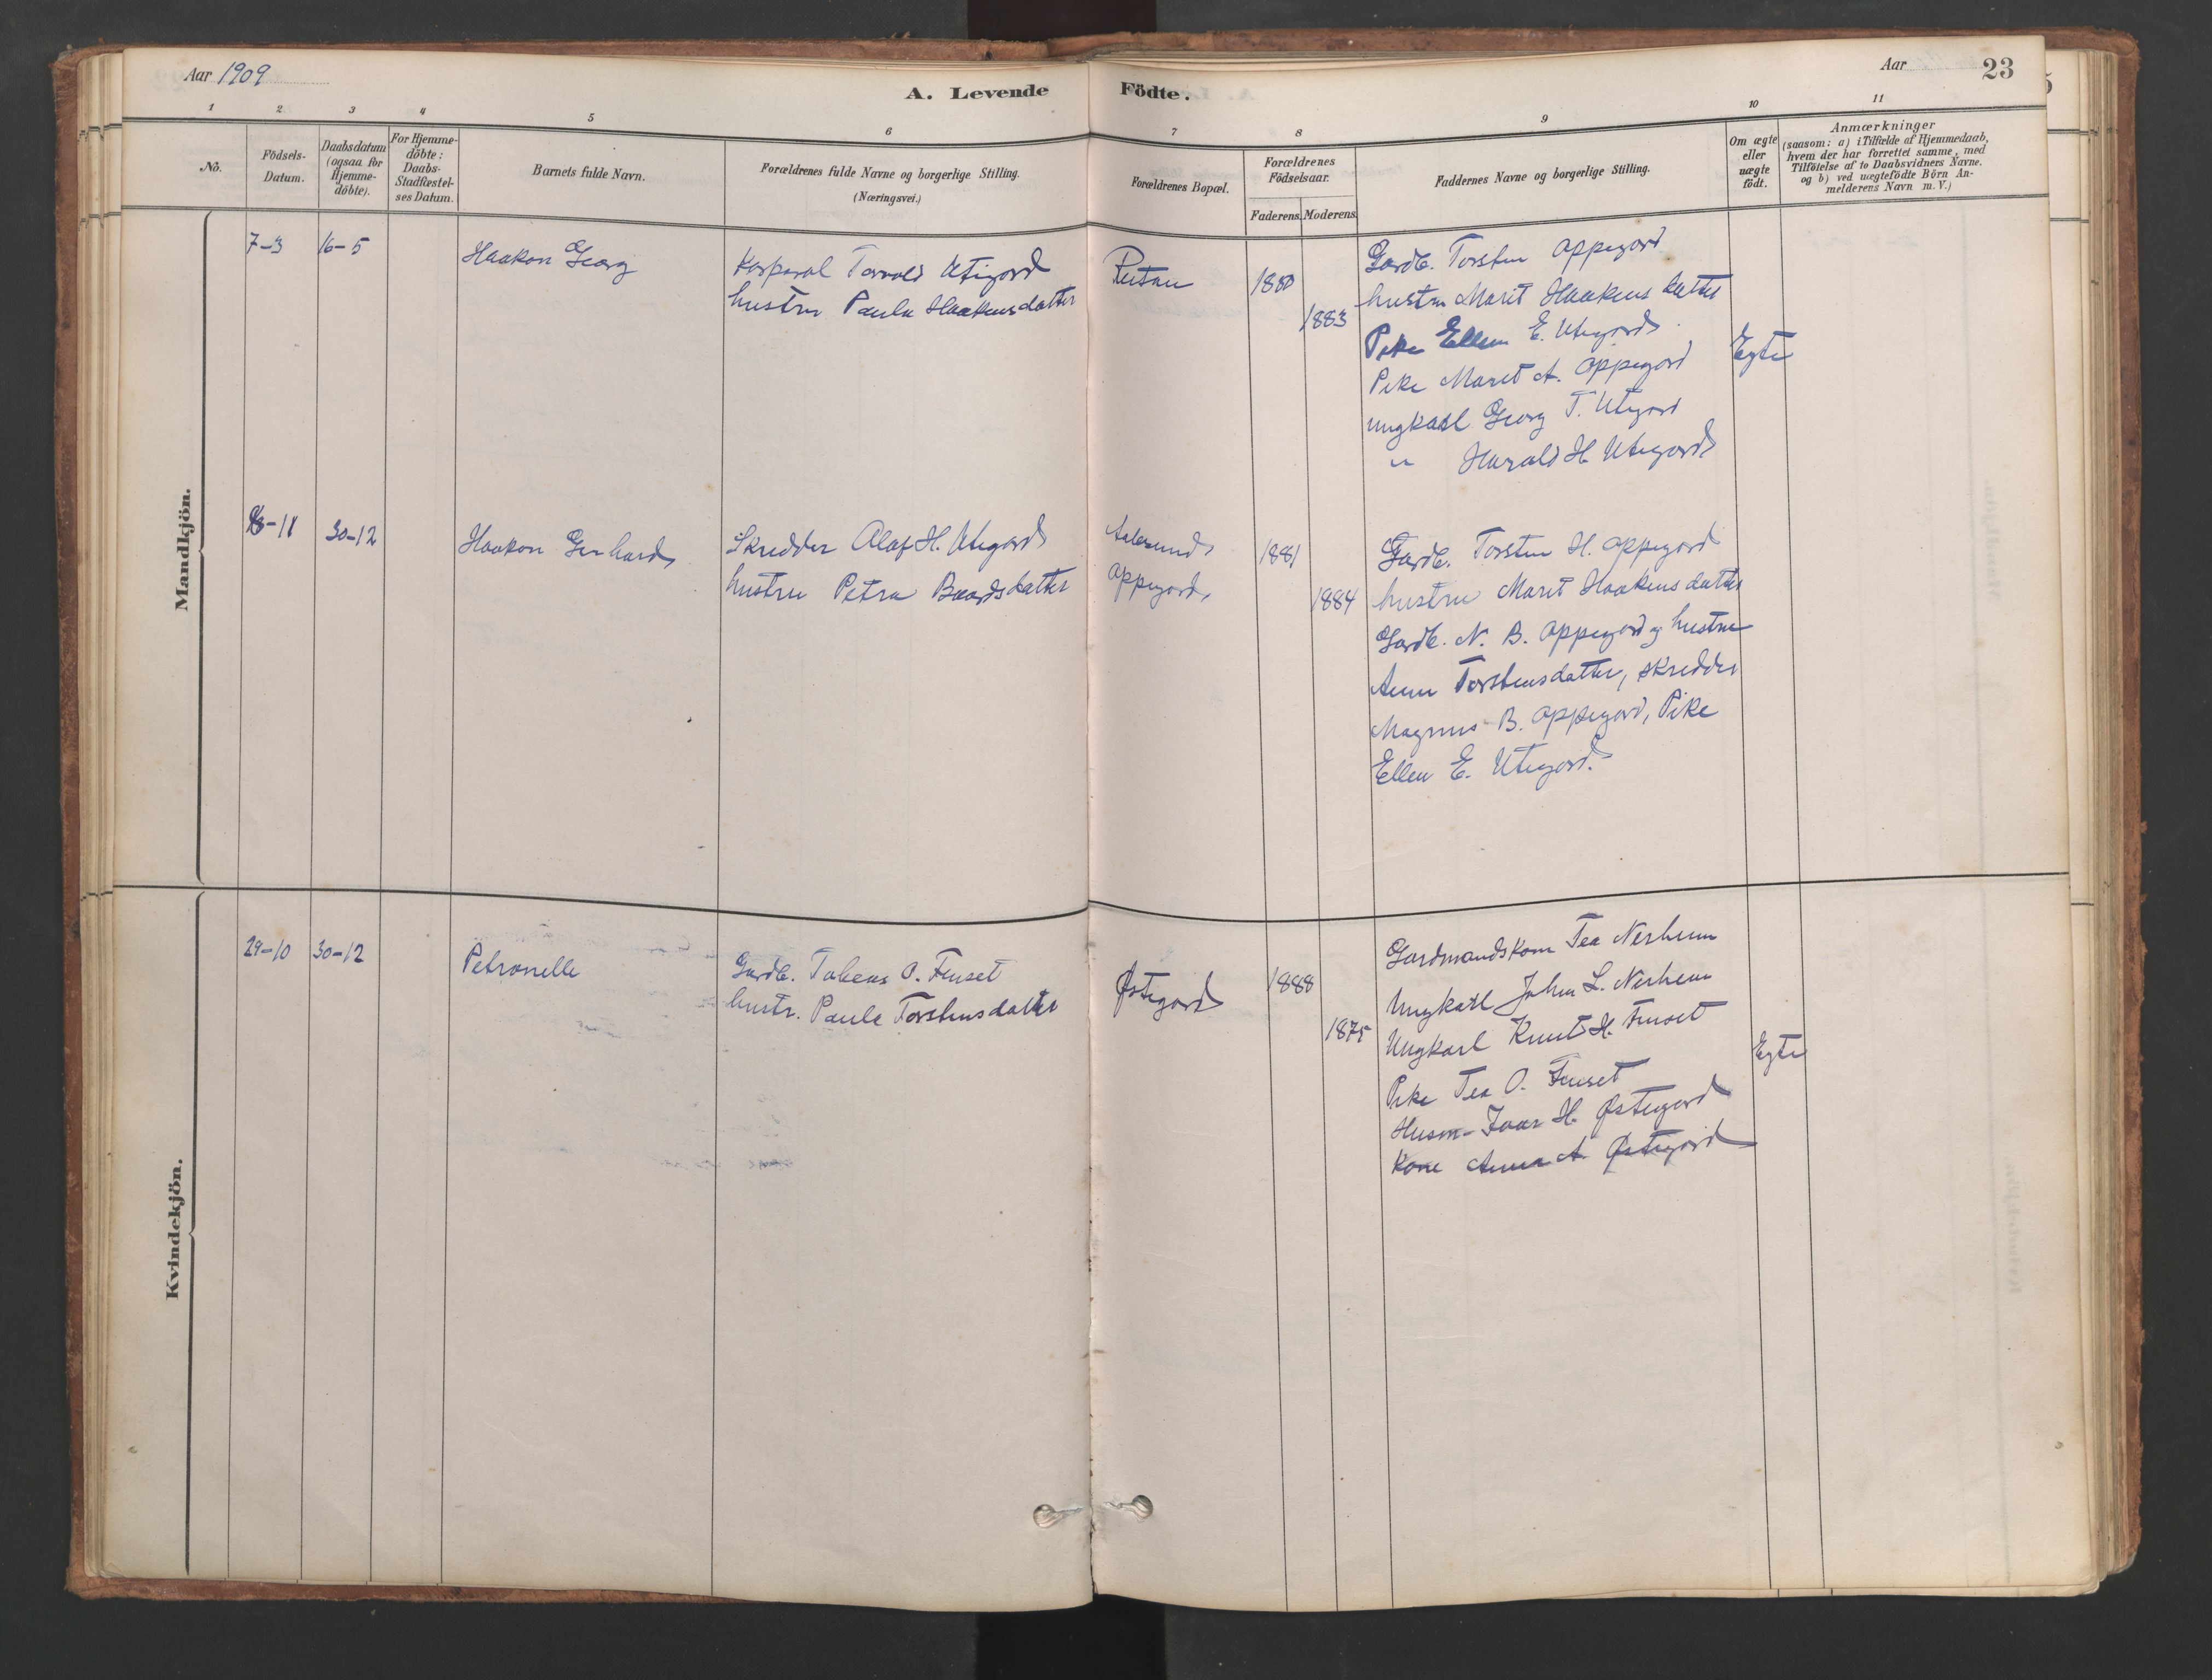 Aar 1909
A. Levende
Födte.
Aar
23
1 2 3 4 5 6 7 8 9 10 11
No.
Födsels-
Datum.
Daabsdatum
(ogsaa for
Hjemme-
döbte).
For Hjemme-
döbte:
Daabs-
Stadfæstel-
ses Datum.
Barnets fulde Navn.
Forældrenes fulde Navne og borgerlige Stilling.
(Næringsvei.)
Forældrenes Bopæl.
Forældrenes
Födselsaar.
Faderens. Moderens.
Faddernes Navne og borgerlige Stilling.
Om ægte
eller
uægte
födt.
Anmærkninger
(saasom: a) i Tilfælde af Hjemmedaab,
hvem der har forrettet samme, med
Tilföielse af to Daabsvidners Navne.
og b) ved uægtefödte Börn An-
melderens Navn m. V.)
Mandkjön.
7-3
16-5
Haakon Georg
Korporal Torvald Utigord
hustru Paula Haakensdatter
1880
1883
Gardb. Torsten Oppegord
hustru Marit Haakens datter
Pike Ellen E. Utigord
Pike Marit A. Oppegord
ungkarl Georg T. Utigord
" Harald H. Utigord
Egte
18-11
30-12
Haakon Gerhard
Skredder Olaf H. Utigord
hustru Petra Baardsdatter
Aalesund
Oppegord,
1881
1884
Gardb. Torsten H. Oppegord
hustru Marit Haakensdatter
Gardb. N. B. Oppegord og hustru
Anne Torstensdatter, skredder
Magnus B. Oppegord, Pike
Ellen E. Utigord.
Kvindekjön.
29-10
30-12
Petronelle
Gardb. Tobeas O. Fuset
hustr. Paula Torstensdatter
Østigord
1888
1875
Gardmandskone Tea Nerheim
Ungkarl John L. Nerheim
Ungkarl Knut H. Fuset
Pike Tea O. Fuset
Husm- Ivar H. Østigord
Kone Anna A. Østigord
Egte